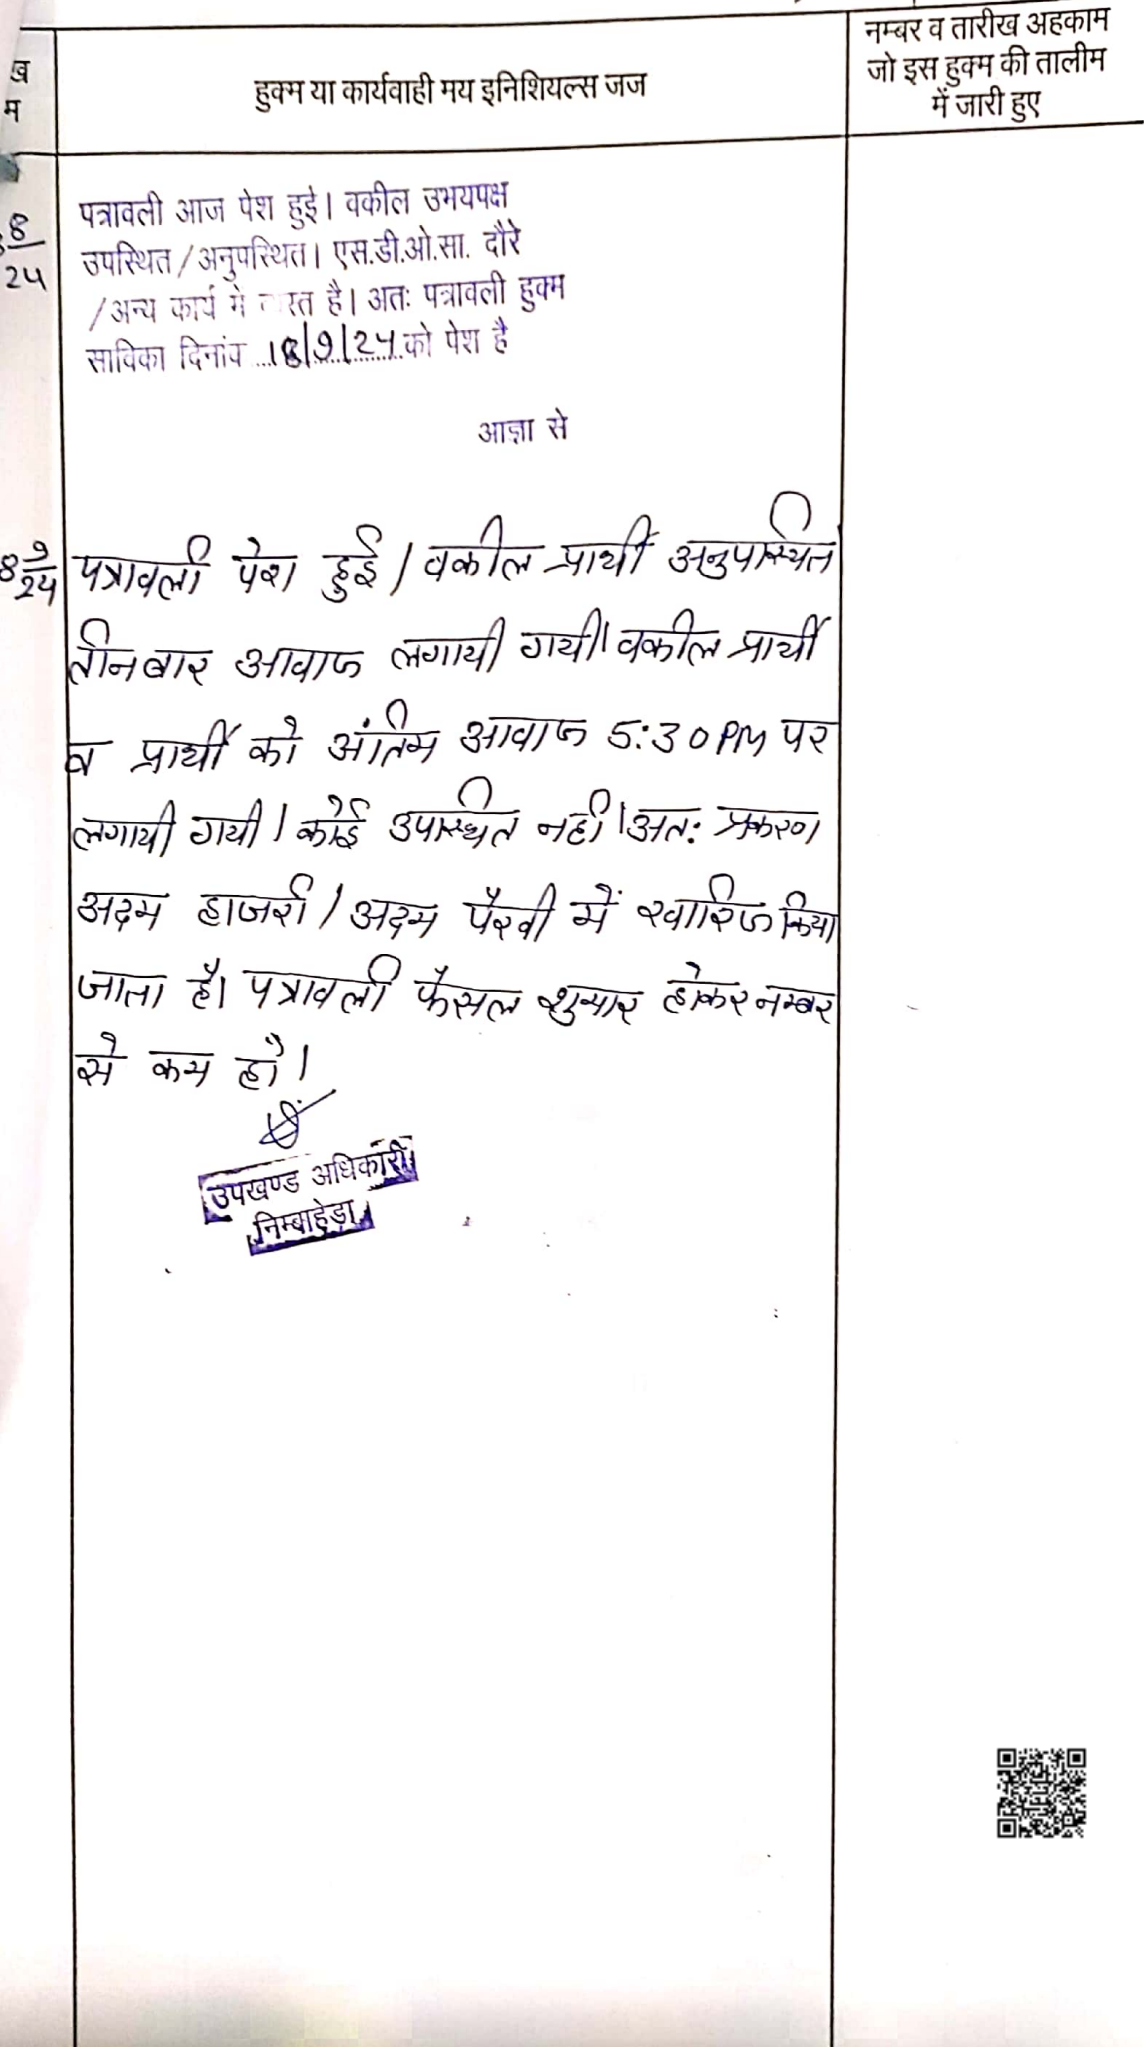 ख
म
हुक्म या कार्यवाही मय इनिशियल्स जज
नम्बर व तारीख अहकाम
जो इस हुक्म की तालीम
में जारी हुए
8
24
पत्रावली आज पेश हुई। वकील उभयपक्ष
उपस्थित/अनुपस्थित। एस.डी.ओ.सा. दौरे
/अन्य कार्य मे है। अतः पत्रावली हुक्म
साविका दिनांव 18/9/24 को पेश है
आज्ञा से
8 9
24
पत्रावली पेश हुई। वकील प्रार्थी अनुपस्थित
तीन बार आवाज लगायी गयी। वकील प्रार्थी
व प्रार्थी को अंतिम आवाज 5:30 PM पर
लगायी गयी। कोई उपस्थित नहीं। अत: प्रकरण
अदम हाजरी / अदम पैरवी में खारिज किया
जाता है। पत्रावली फैसल शुमार होकर नम्बर
से कम हो।
उपखण्ड अधिकारी
निम्बाहेड़ा